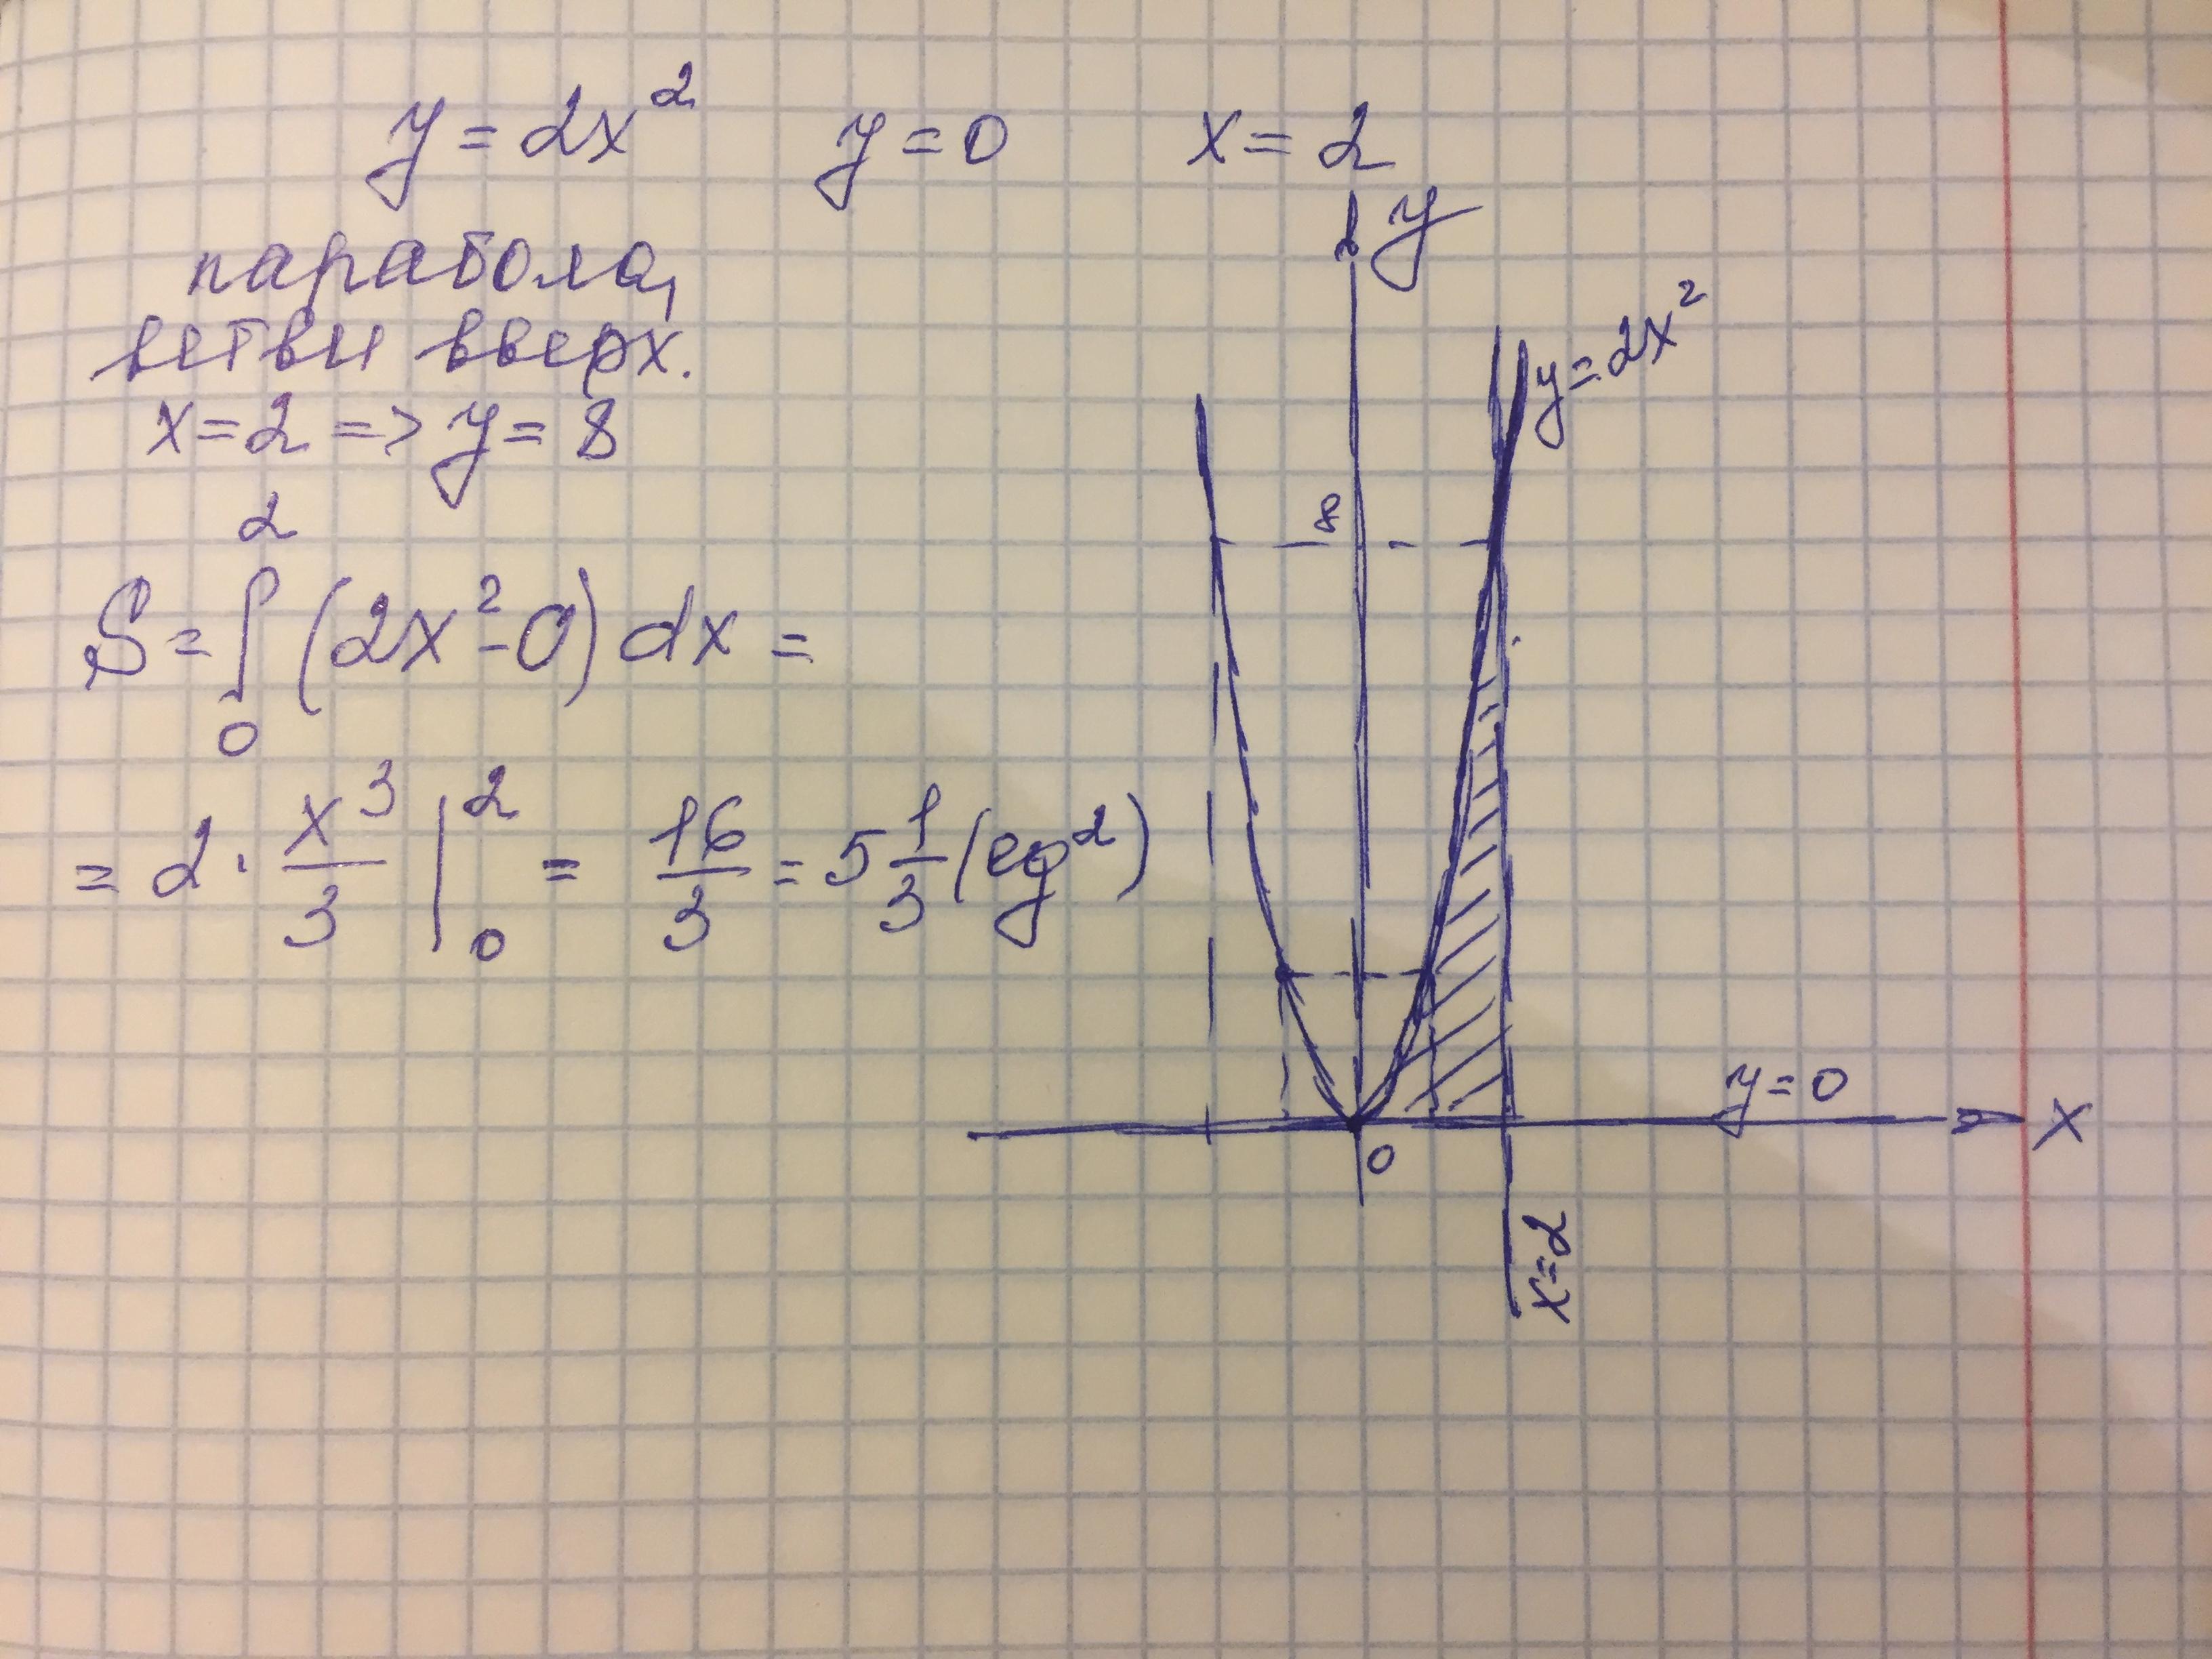 y = 2x² y = 0 x = 2
парабола,
ветви вверх.
x = 2 => y = 8
S = ∫₀² (2x² - 0) dx =
= 2 · x³/3 |₀² = 16/3 = 5 1/3 (ед²)
y
y = 2x²
8
y = 0
x
0
x = 2